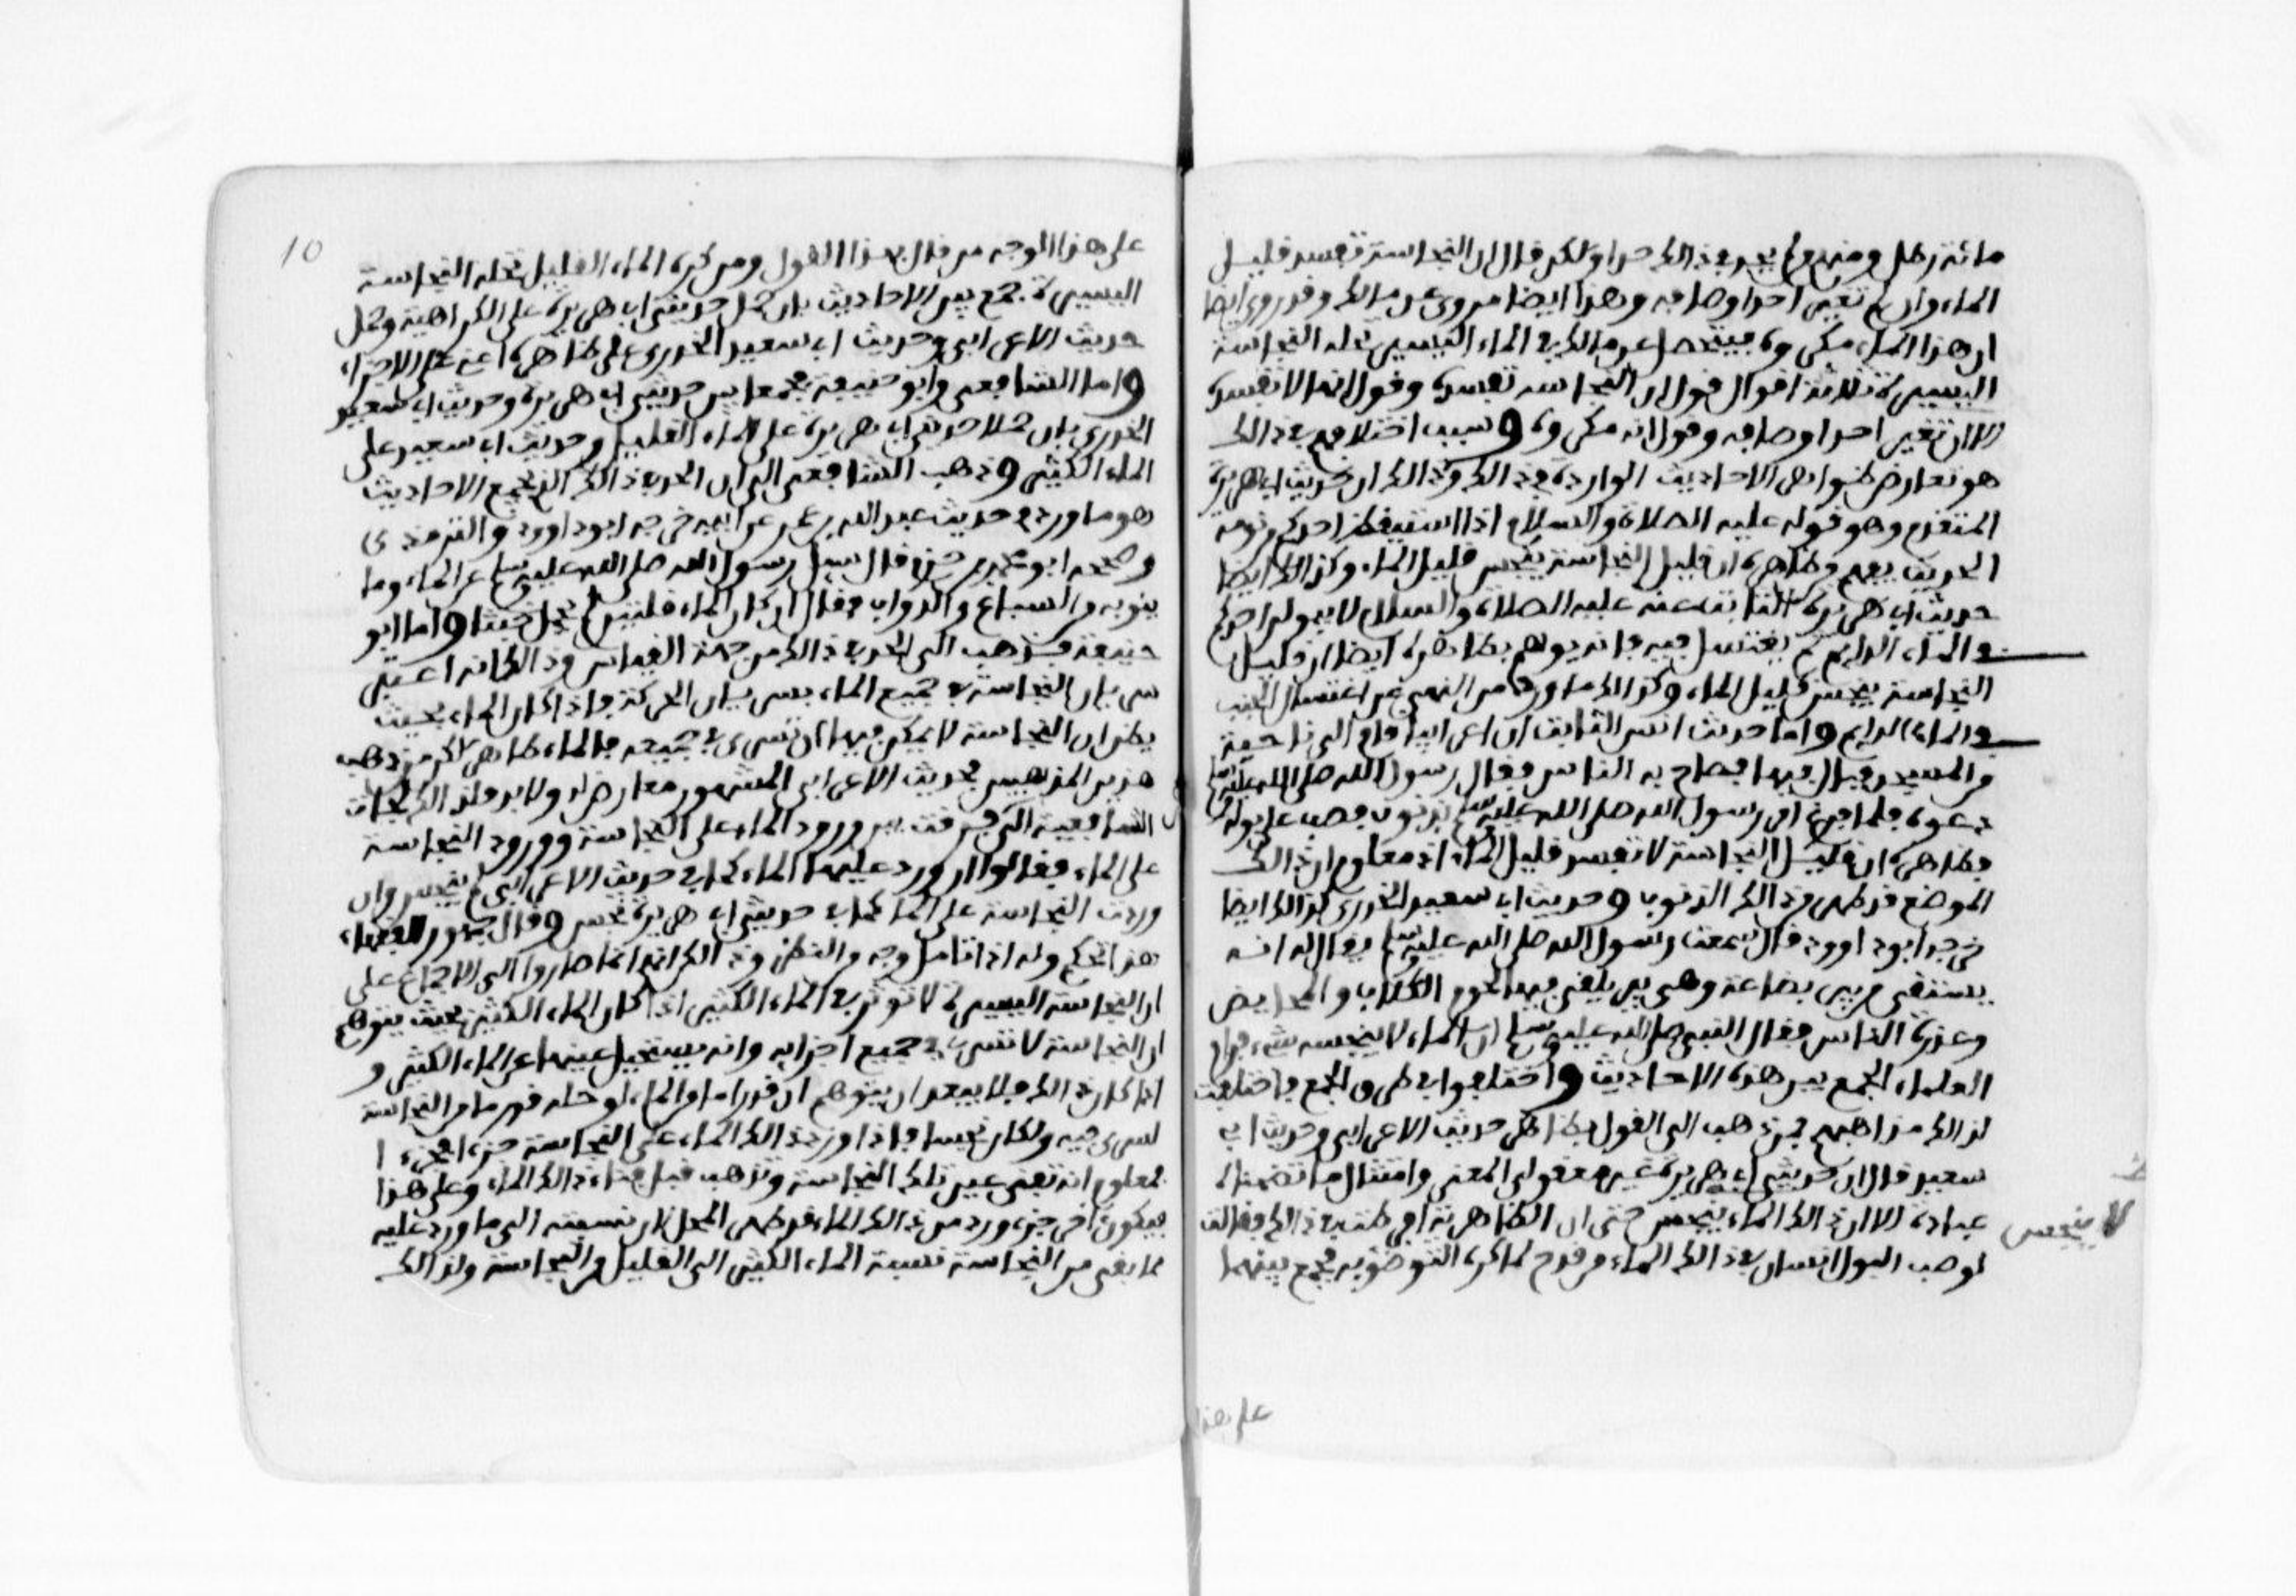 مائة رطل ومنهم من لم يحد في ذلك حدا ولكن قال ان النجاسة تفسد قليل
الماء وان لم تغير احد اوصافه وهذا ايضا مروي عن مالك وقد روي ايضا
ان هذا الماء مكروه فيتحصل عن مالك في الماء اليسير تحله النجاسة
اليسيرة ثلاثة اقوال قول ان النجاسة تفسده وقول انها لا تفسده
الا ان تغير احد اوصافه وقول انه مكروه وسبب اختلافهم في ذالك
هو تعارض ظواهر الاحاديث الواردة في ذالك وذالك ان حديث ابي هريرة
المتقدم وهو قوله عليه الصلاة والسلام اذا استيقظ احدكم من نومه
الحديث يفهم من ظاهره ان قليل النجاسة ينجس قليل الماء وكذالك ايضا
حديث ابي هريرة الثابت عنه عليه الصلاة والسلام لا يبولن احدكم
في الماء الدايم ثم يغتسل فيه فانه يوهم بظاهره ايضا ان قليل
النجاسة ينجس قليل الماء وكذالك ما ورد من النهي عن اغتسال الجنب
في الماء الدايم واما حديث انس الثابت ان اعرابيا قام الى ناحية
من المسجد فبال فيها فصاح به الناس فقال رسول الله صلى الله عليه وسلم
دعوه فلما فرغ امر رسول الله صلى الله عليه وسلم بذنوب فصب على بوله
فظاهره ان قليل النجاسة لا تفسد قليل الماء اذ معلوم ان ذالك
الموضع قد طهر من ذالك الذنوب وحديث ابي سعيد الخدري كذالك ايضا
خرجه ابو داوود قال سمعت رسول الله صلى الله عليه وسلم يقال له انه
يستقى من بير بضاعة وهي بير يلقى فيها لحوم الكلاب والمحايض
وعذرة الناس فقال النبي صلى الله عليه وسلم ان الماء لا ينجسه شيء فرام
العلماء الجمع بين هذه الاحاديث واختلفوا في طرق الجمع فاختلفت
لذالك مذاهبهم فمن ذهب الى القول بظاهر حديث الاعرابي وحديث ابي
سعيد قال ان حديثي ابي هريرة غير معقولي المعنى وامتثال ما تضمناه
عبادة لا ان ذالك الماء ينجس حتى ان الظاهرية افرطت في ذالك فقالت
لو صب البول انسان في ذالك الماء من قدح لما كره التوضؤ به فجمع بينهما
لا ينجس
على هذا
10
على هذا الوجه من قال بهذا القول ومن كره الماء القليل تحله النجاسة
اليسيرة جمع بين الاحاديث بان حمل حديثي ابي هريرة على الكراهية وحمل
حديث الاعرابي وحديث ابي سعيد الخدري على ظاهرهما اعني على الاجزاء
واما الشافعي وابو حنيفة فجمعا بين حديثي ابي هريرة وحديث ابي سعيد
الخدري بان حملا حديثي ابي هريرة على الماء القليل وحديث ابي سعيد على
الماء الكثير وذهب الشافعي الى ان الحد في ذالك الذي يجمع الاحاديث
هو ما ورد في حديث عبد الله بن عمر عن ابيه خرجه ابو داوود والترمذي
وصححه ابو محمد بن حزم قال سيل رسول الله صلى الله عليه وسلم عن الماء وما
ينوبه من السباع والدواب فقال ان كان الماء قلتين لم يحمل خبثا واما ابو
حنيفة فذهب الى ان الحد في ذالك من جهة القياس وذالك انه اعتبر
سريان النجاسة في جميع الماء بسريان الحركة فاذا كان الماء بحيث
يظن ان النجاسة لا يمكن فيها ان تسري في جميعه فالماء طاهر لاكن من ذهب
هذين المذهبين فحديث الاعرابي المشهور معارض له ولا بد فلذالك لجات
الشافعية الى ان فرقت بين ورود الماء على النجاسة وورود النجاسة
على الماء فقالوا ان ورد عليها الماء كما في حديث الاعرابي لم ينجس وان
وردت النجاسة على الماء كما في حديث ابي هريرة نجس وقال جمهور الفقهاء
هذا تحكم وله اذا تامل وجه من النظر وذالك انهم انما صاروا الى الاجماع على
ان النجاسة اليسيرة لا توثر في الماء الكثير اذا كان الماء الكثير بحيث يتوهم
ان النجاسة لا تسري في جميع اجزايه وانه يستحيل عينها عن الماء الكثير و
اذا كان ذالك فلا يبعد ان يتوهم ان قدرا ما من الماء لو حله قدر ما من النجاسة
لسرى فيه ولكان نجسا فاذا ورد ذالك الماء على النجاسة جزءا فجزءا
فمعلوم انه تفنى عين تلك النجاسة وتذهب قبل فناء ذالك الماء وعلى هذا
فيكون اخر جزء ورد من ذالك الماء قد طهر المحل لان نسبته الى ما ورد عليه
مما بقي من النجاسة نسبة الماء الكثير الى القليل من النجاسة ولذالك